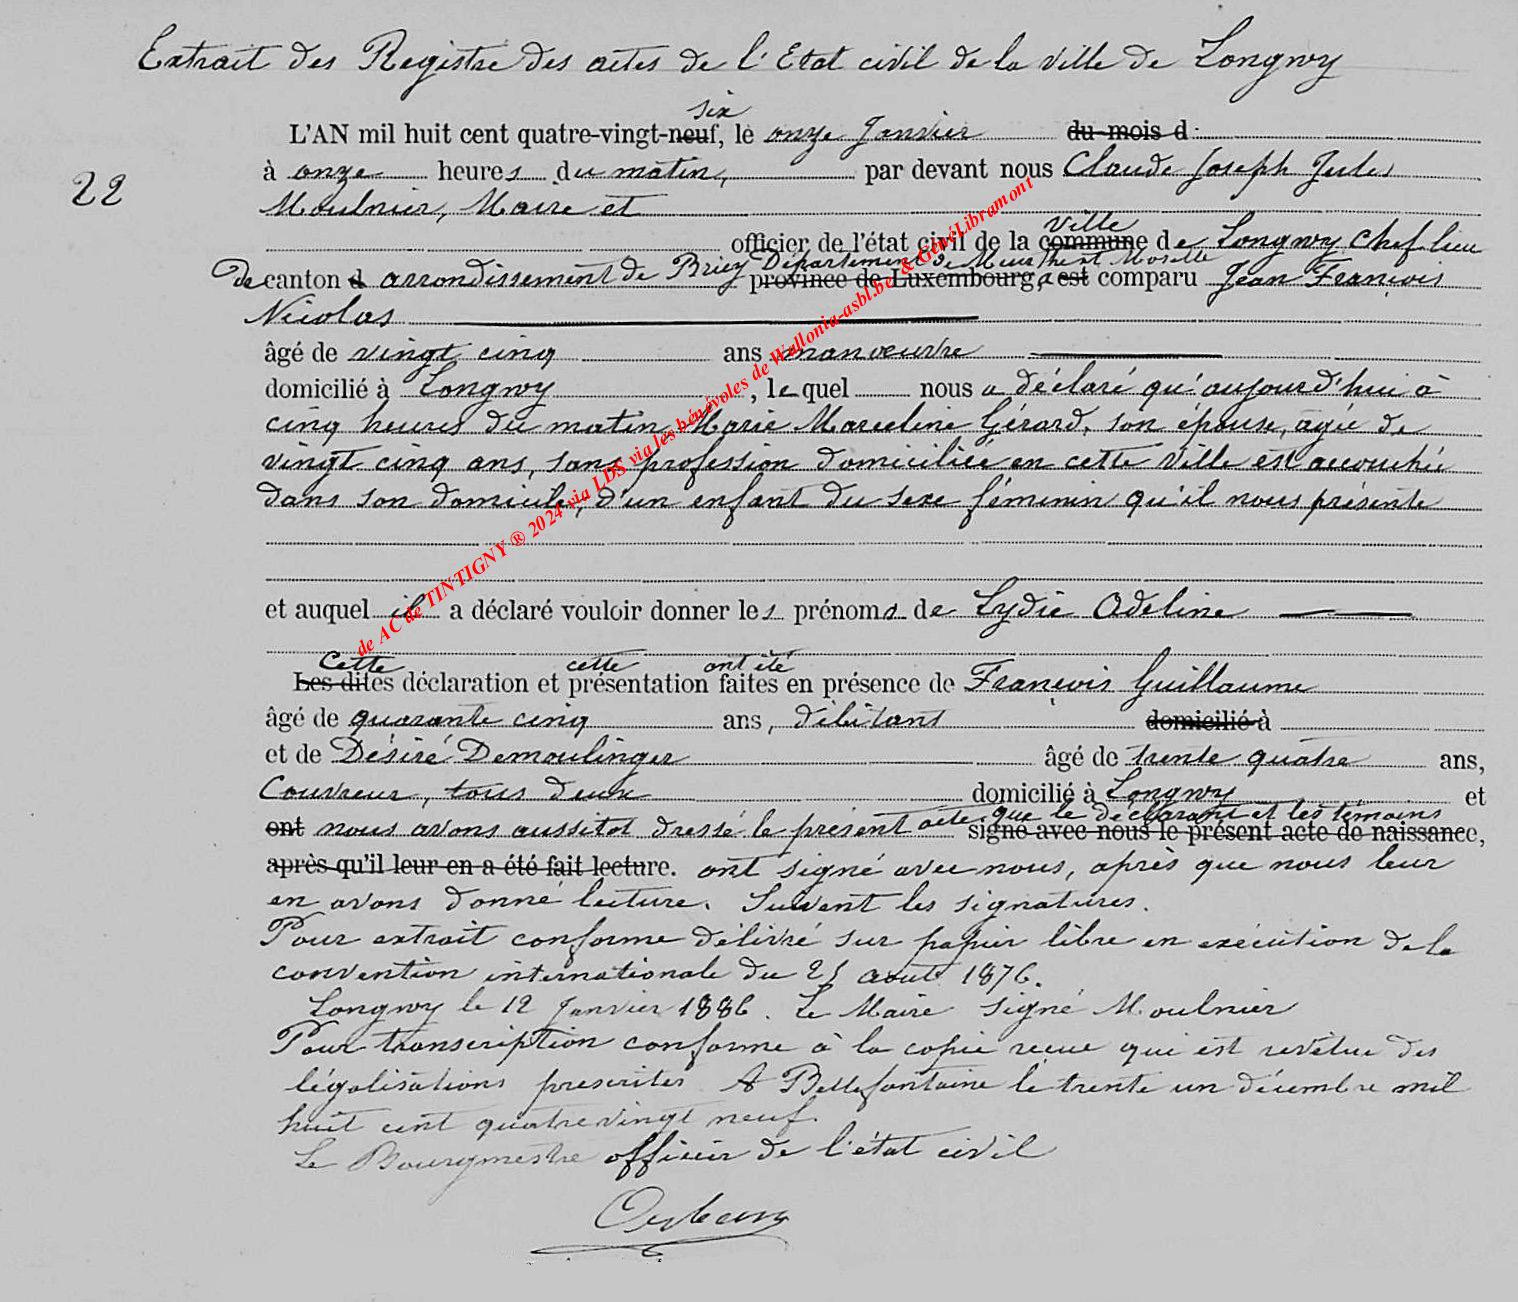 Extrait des Registre des actes de l'Etat civil de la ville de Longwy
six
L'AN mil huit cent quatre-vingt-neuf, le onze Janvier du mois d
22
à onze heures du matin, par devant nous Claude Joseph Jules
Moulnier, Maire et
ville
officier de l'état civil de la commune de Longwy Chef lieu
Département de Meurthe et Moselle
de canton d arrondissement de Briey province de Luxembourg, a est comparu Jean François
Nicolas
âgé de vingt cinq ans manœuvre
domicilié à Longwy, lequel nous a déclaré qu'aujourd'hui à
cinq heures du matin Marie Marceline Gérard, son épouse, agée de
vingt cinq ans, sans profession domiciliée en cette ville est accouchée
dans son domicile, d'un enfant du sexe féminin qu'il nous présente
et auquel il a déclaré vouloir donner les prénoms de Lydie Adeline
Cette cette ont été
Les dites déclaration et présentation faites en présence de François Guillaume
âgé de quarante cinq ans, débitant domicilié à
et de Désiré Demoulinger âgé de trente quatre ans,
Couvreur, tous deux domicilié à Longwy et
acte que le déclarant et les témoins
ont nous avons aussitot dressé le présent signé avec nous le présent acte de naissance,
après qu'il leur en a été fait lecture. ont signé avec nous, après que nous leur
en avons donné lecture. Suivent les signatures.
Pour extrait conforme délivré sur papier libre en exécution de la
convention internationale du 25 août 1876.
Longwy le 12 Janvier 1886. Le Maire signé Moulnier
Pour transcription conforme à la copie recue qui est revêtue des
légalisations prescrites A Bellefontaine le trente un décembre mil
huit cent quatre vingt neuf.
Le Bourgmestre officier de l'état civil
de AC de TINTIGNY ® 2024 via LDS via les bénévoles de Wallonia-asbl.be & GénéLibramont